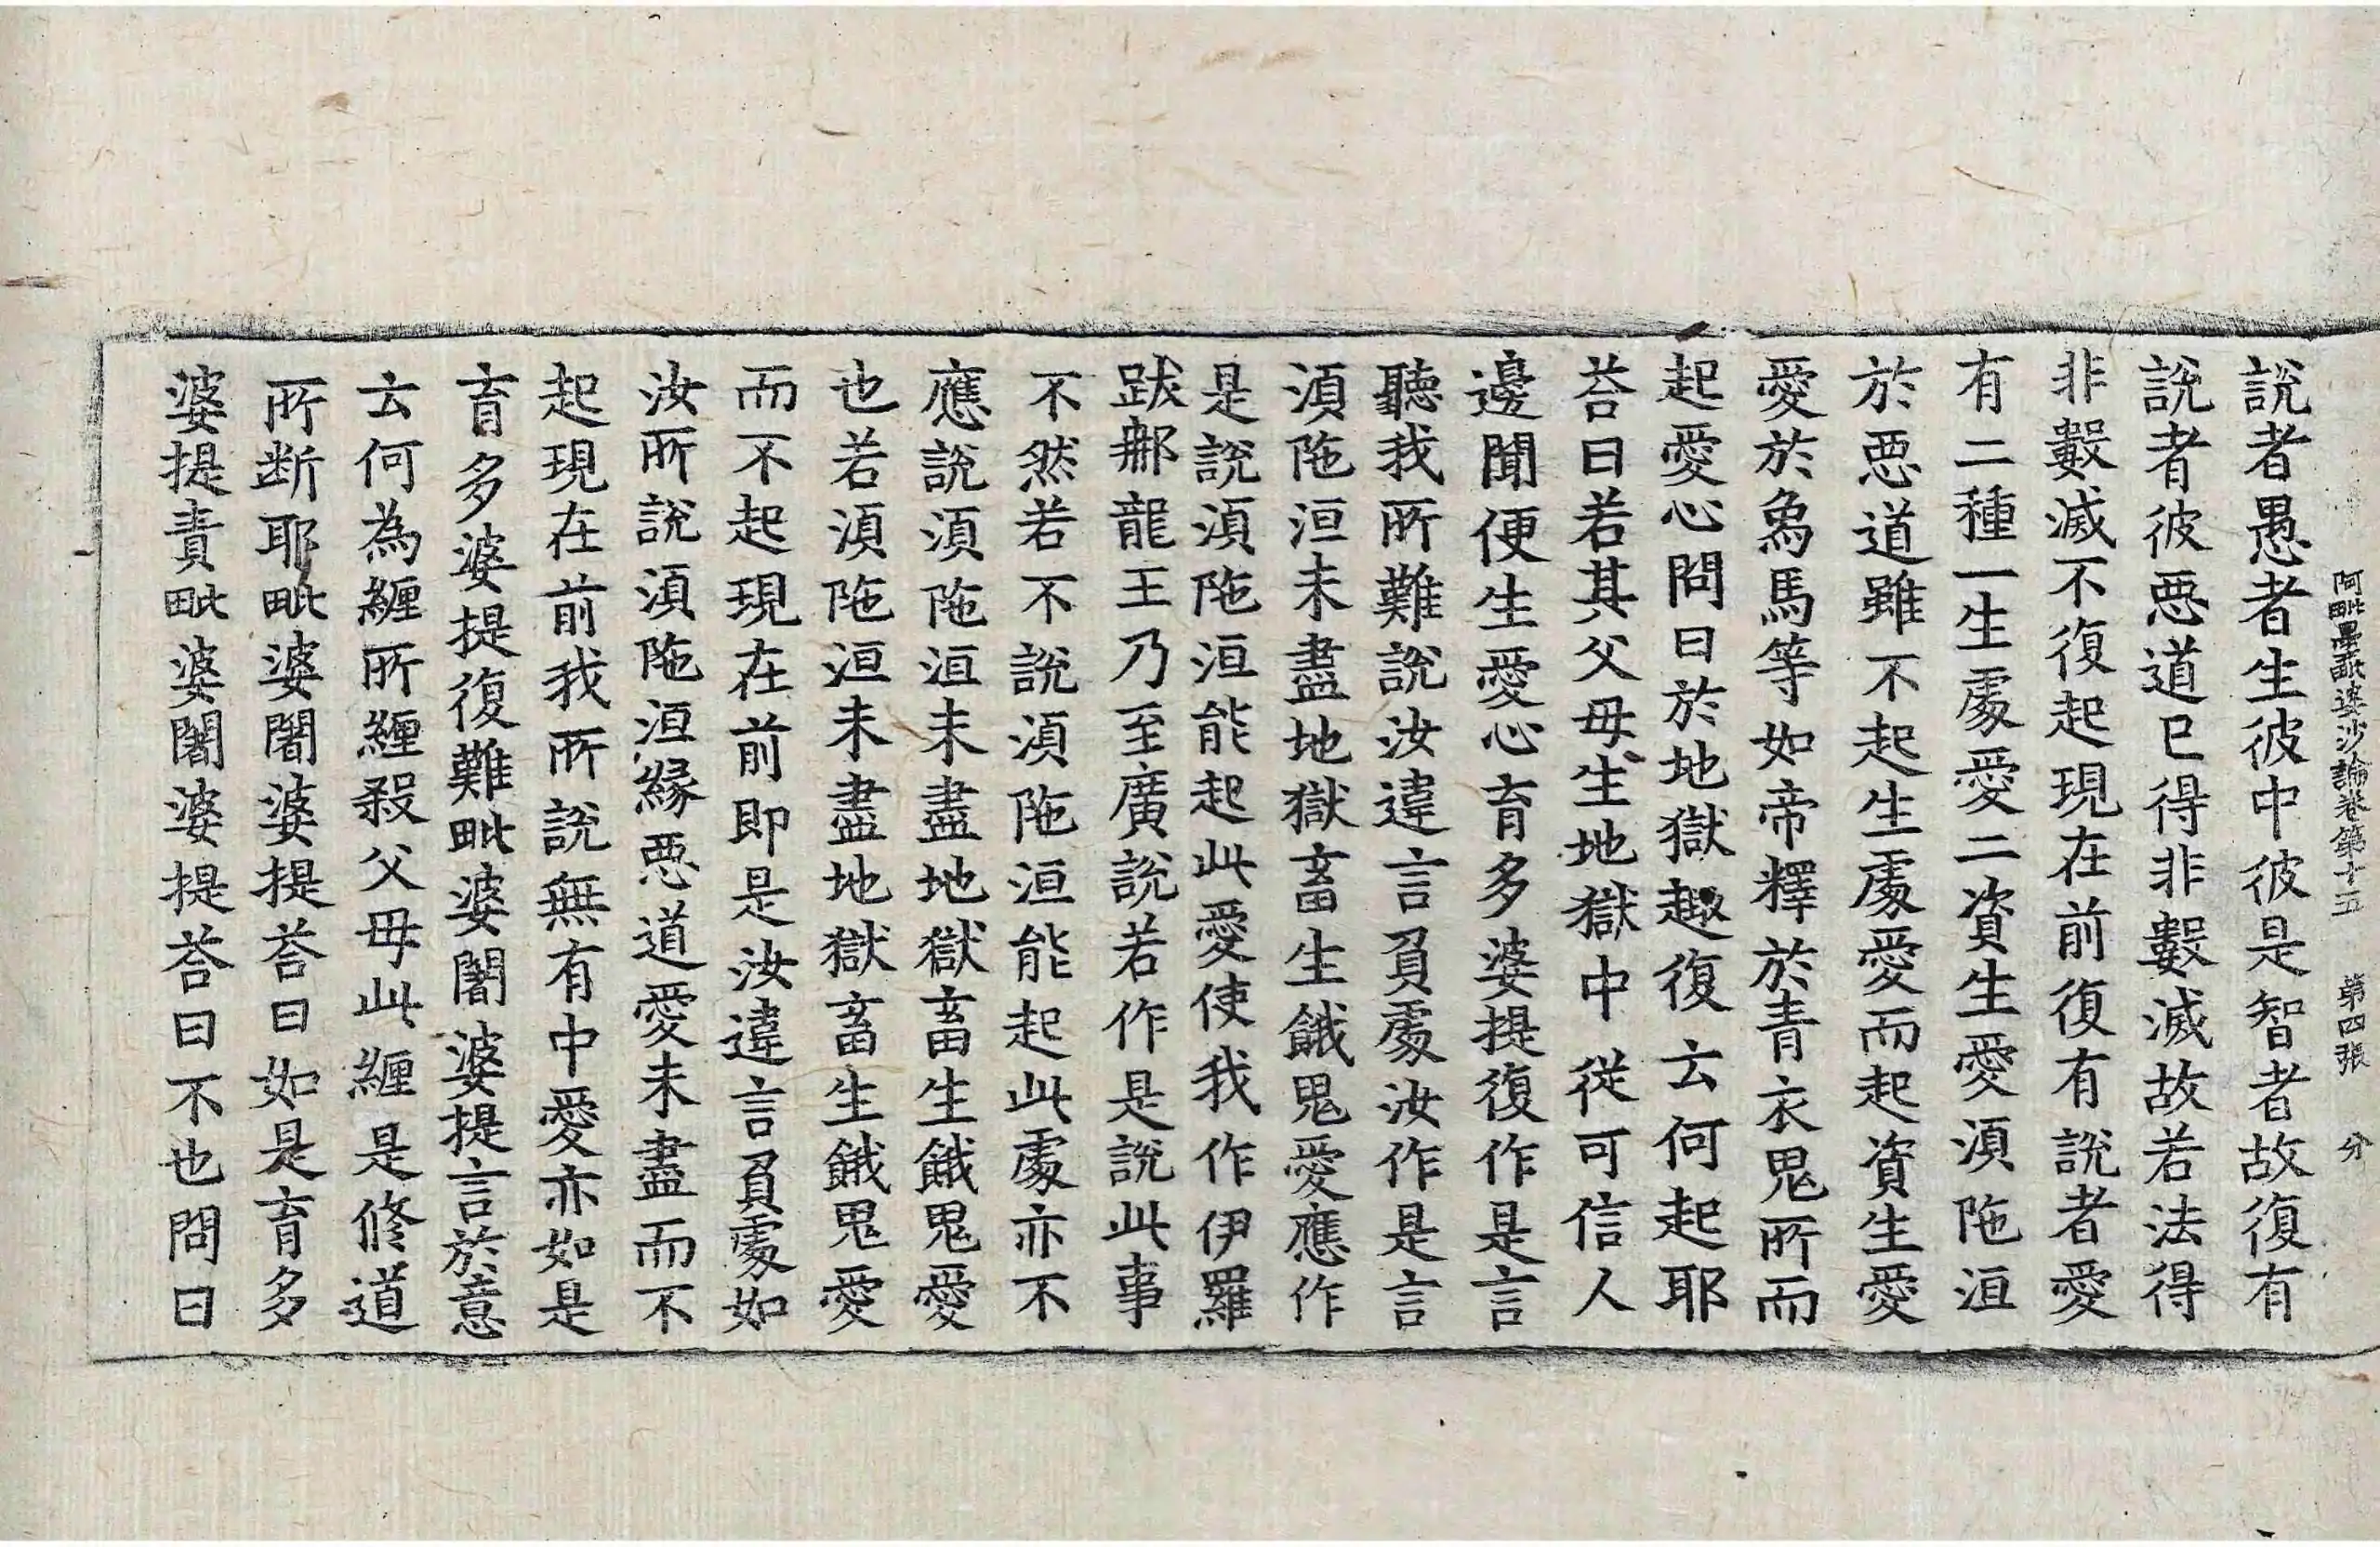 阿毗曇毗婆沙論卷第十五 第四張 分
說者愚者生彼中彼是智者故復有
說者彼惡道已得非數滅故若法得
非數滅不復起現在前復有說者愛
有二種一生處愛二資生愛須陁洹
於惡道雖不起生處愛而起資生愛
愛於象馬等如帝釋於青衣鬼所而
起愛心問曰於地獄趣復云何起耶
荅曰若其父母生地獄中從可信人
邊聞便生愛心育多婆提復作是言
聽我所難說汝違言負處汝作是言
須陁洹未盡地獄畜生餓鬼愛應作
是說須陁洹能起此愛使我作伊羅
跋𨚗龍王乃至廣說若作是說此事
不然若不說須陁洹能起此處亦不
應說須陁洹未盡地獄畜生餓鬼愛
也若須陁洹未盡地獄畜生餓鬼愛
而不起現在前即是汝違言負處如
汝所說須陁洹緣惡道愛未盡而不
起現在前我所說無有中愛亦如是
育多婆提復難毗婆闍婆提言於意
云何為纏所纏殺父母此纏是修道
所斷耶毗婆闍婆提荅曰如是育多
婆提責毗婆闍婆提荅曰不也問曰